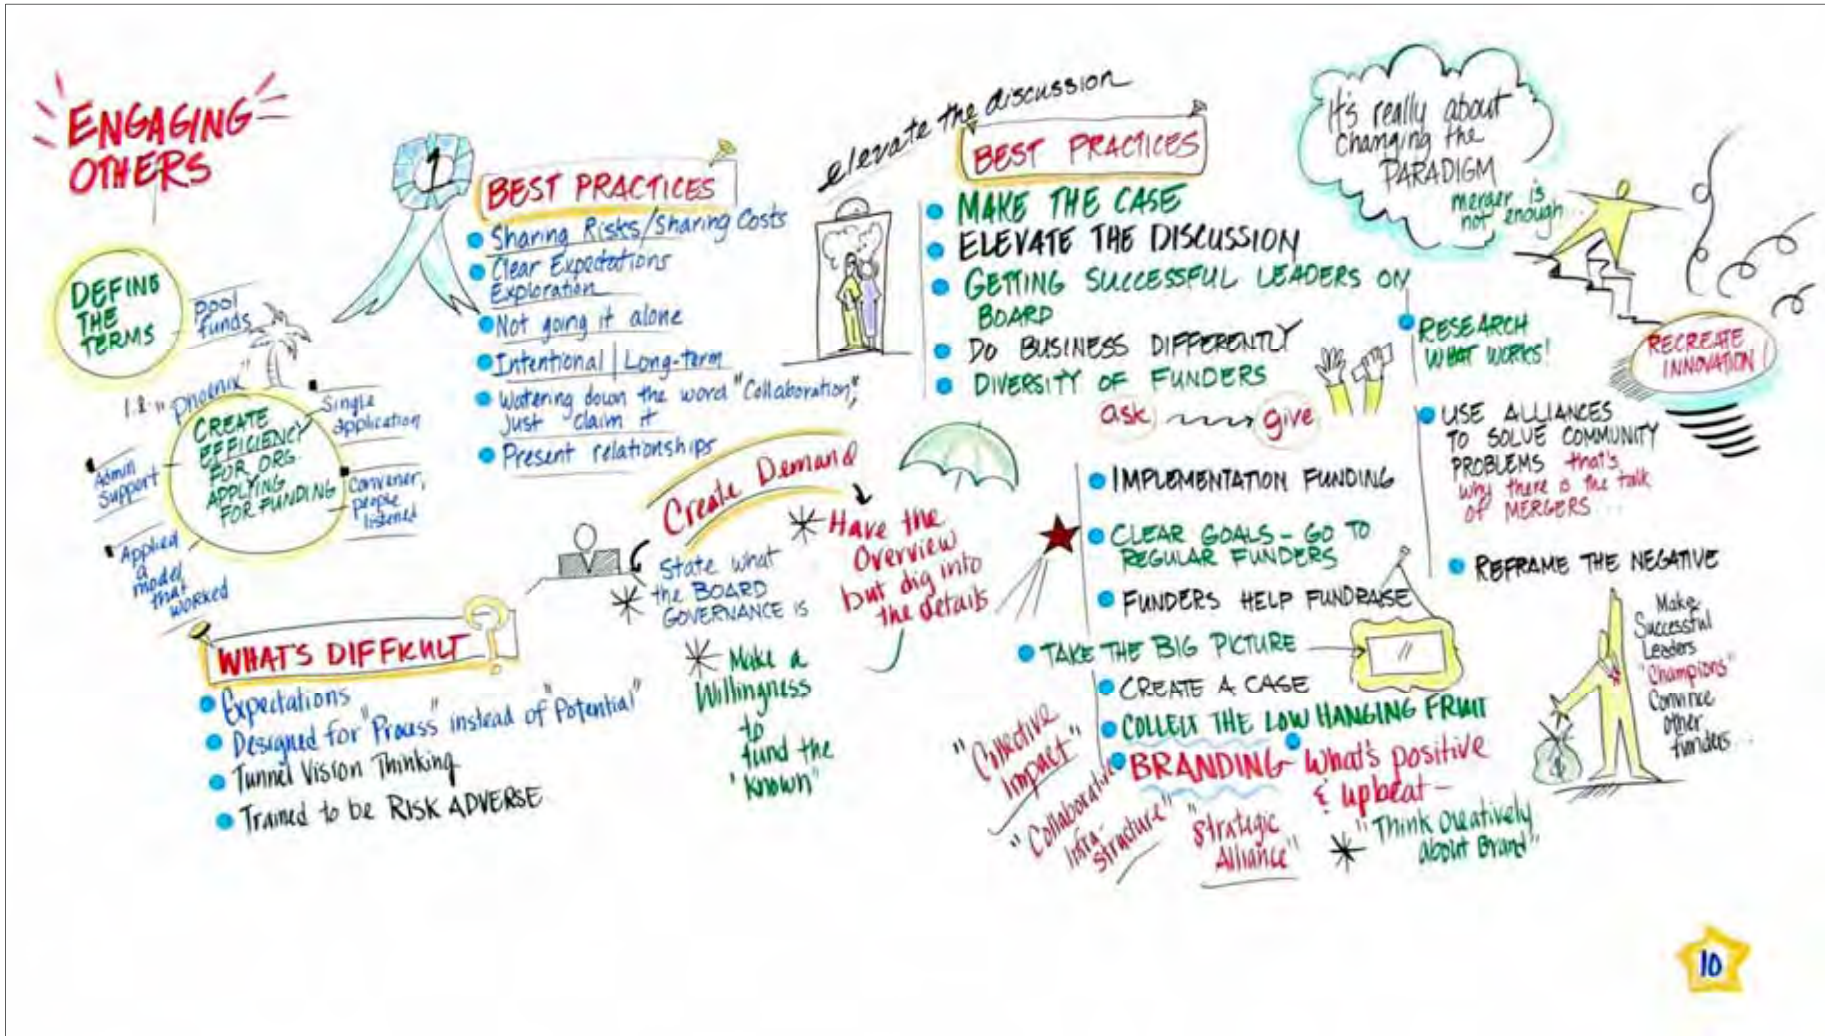 ENGAGING
OTHERS
DEFINE
THE
TERMS
pool
funds
"Phoenix"
CREATE
EFFICIENCY
FOR ORG.
APPLYING
FOR FUNDING
Single
application
Admin
Support
Convener,
people
listened
Applied
a
model
that
worked
1
BEST PRACTICES
Sharing Risks/Sharing Costs
Clear Expectations
Exploration
Not going it alone
Intentional | Long-term
Watering down the word "Collaboration",
Just claim it
Present relationships
WHAT'S DIFFICULT
Expectations
Designed for "Process" instead of "Potential"
Tunnel Vision Thinking
Trained to be RISK ADVERSE
Create Demand
State what
the BOARD
GOVERNANCE IS
Have the
Overview
but dig into
the details
Make a
Willingness
to
fund the
"Known"
elevate the discussion
BEST PRACTICES
MAKE THE CASE
ELEVATE THE DISCUSSION
GETTING SUCCESSFUL LEADERS ON
BOARD
DO BUSINESS DIFFERENTLY
DIVERSITY OF FUNDERS
ask
give
IMPLEMENTATION FUNDING
CLEAR GOALS - GO TO
REGULAR FUNDERS
FUNDERS HELP FUNDRAISE
TAKE THE BIG PICTURE
CREATE A CASE
COLLECT THE LOW HANGING FRUIT
BRANDING - What's positive
& upbeat -
"Think creatively
about Brand"
"Collective
Impact"
"Collaborative
Infra-
structure"
"Strategic
Alliance"
It's really about
changing the
PARADIGM
merger is
not enough...
RECREATE
INNOVATION!
RESEARCH
WHAT WORKS!
USE ALLIANCES
TO SOLVE COMMUNITY
PROBLEMS that's
why there is the talk
of MERGERS...
REFRAME THE NEGATIVE
Make
Successful
Leaders
"Champions"
Convince
other
funders...
$
10